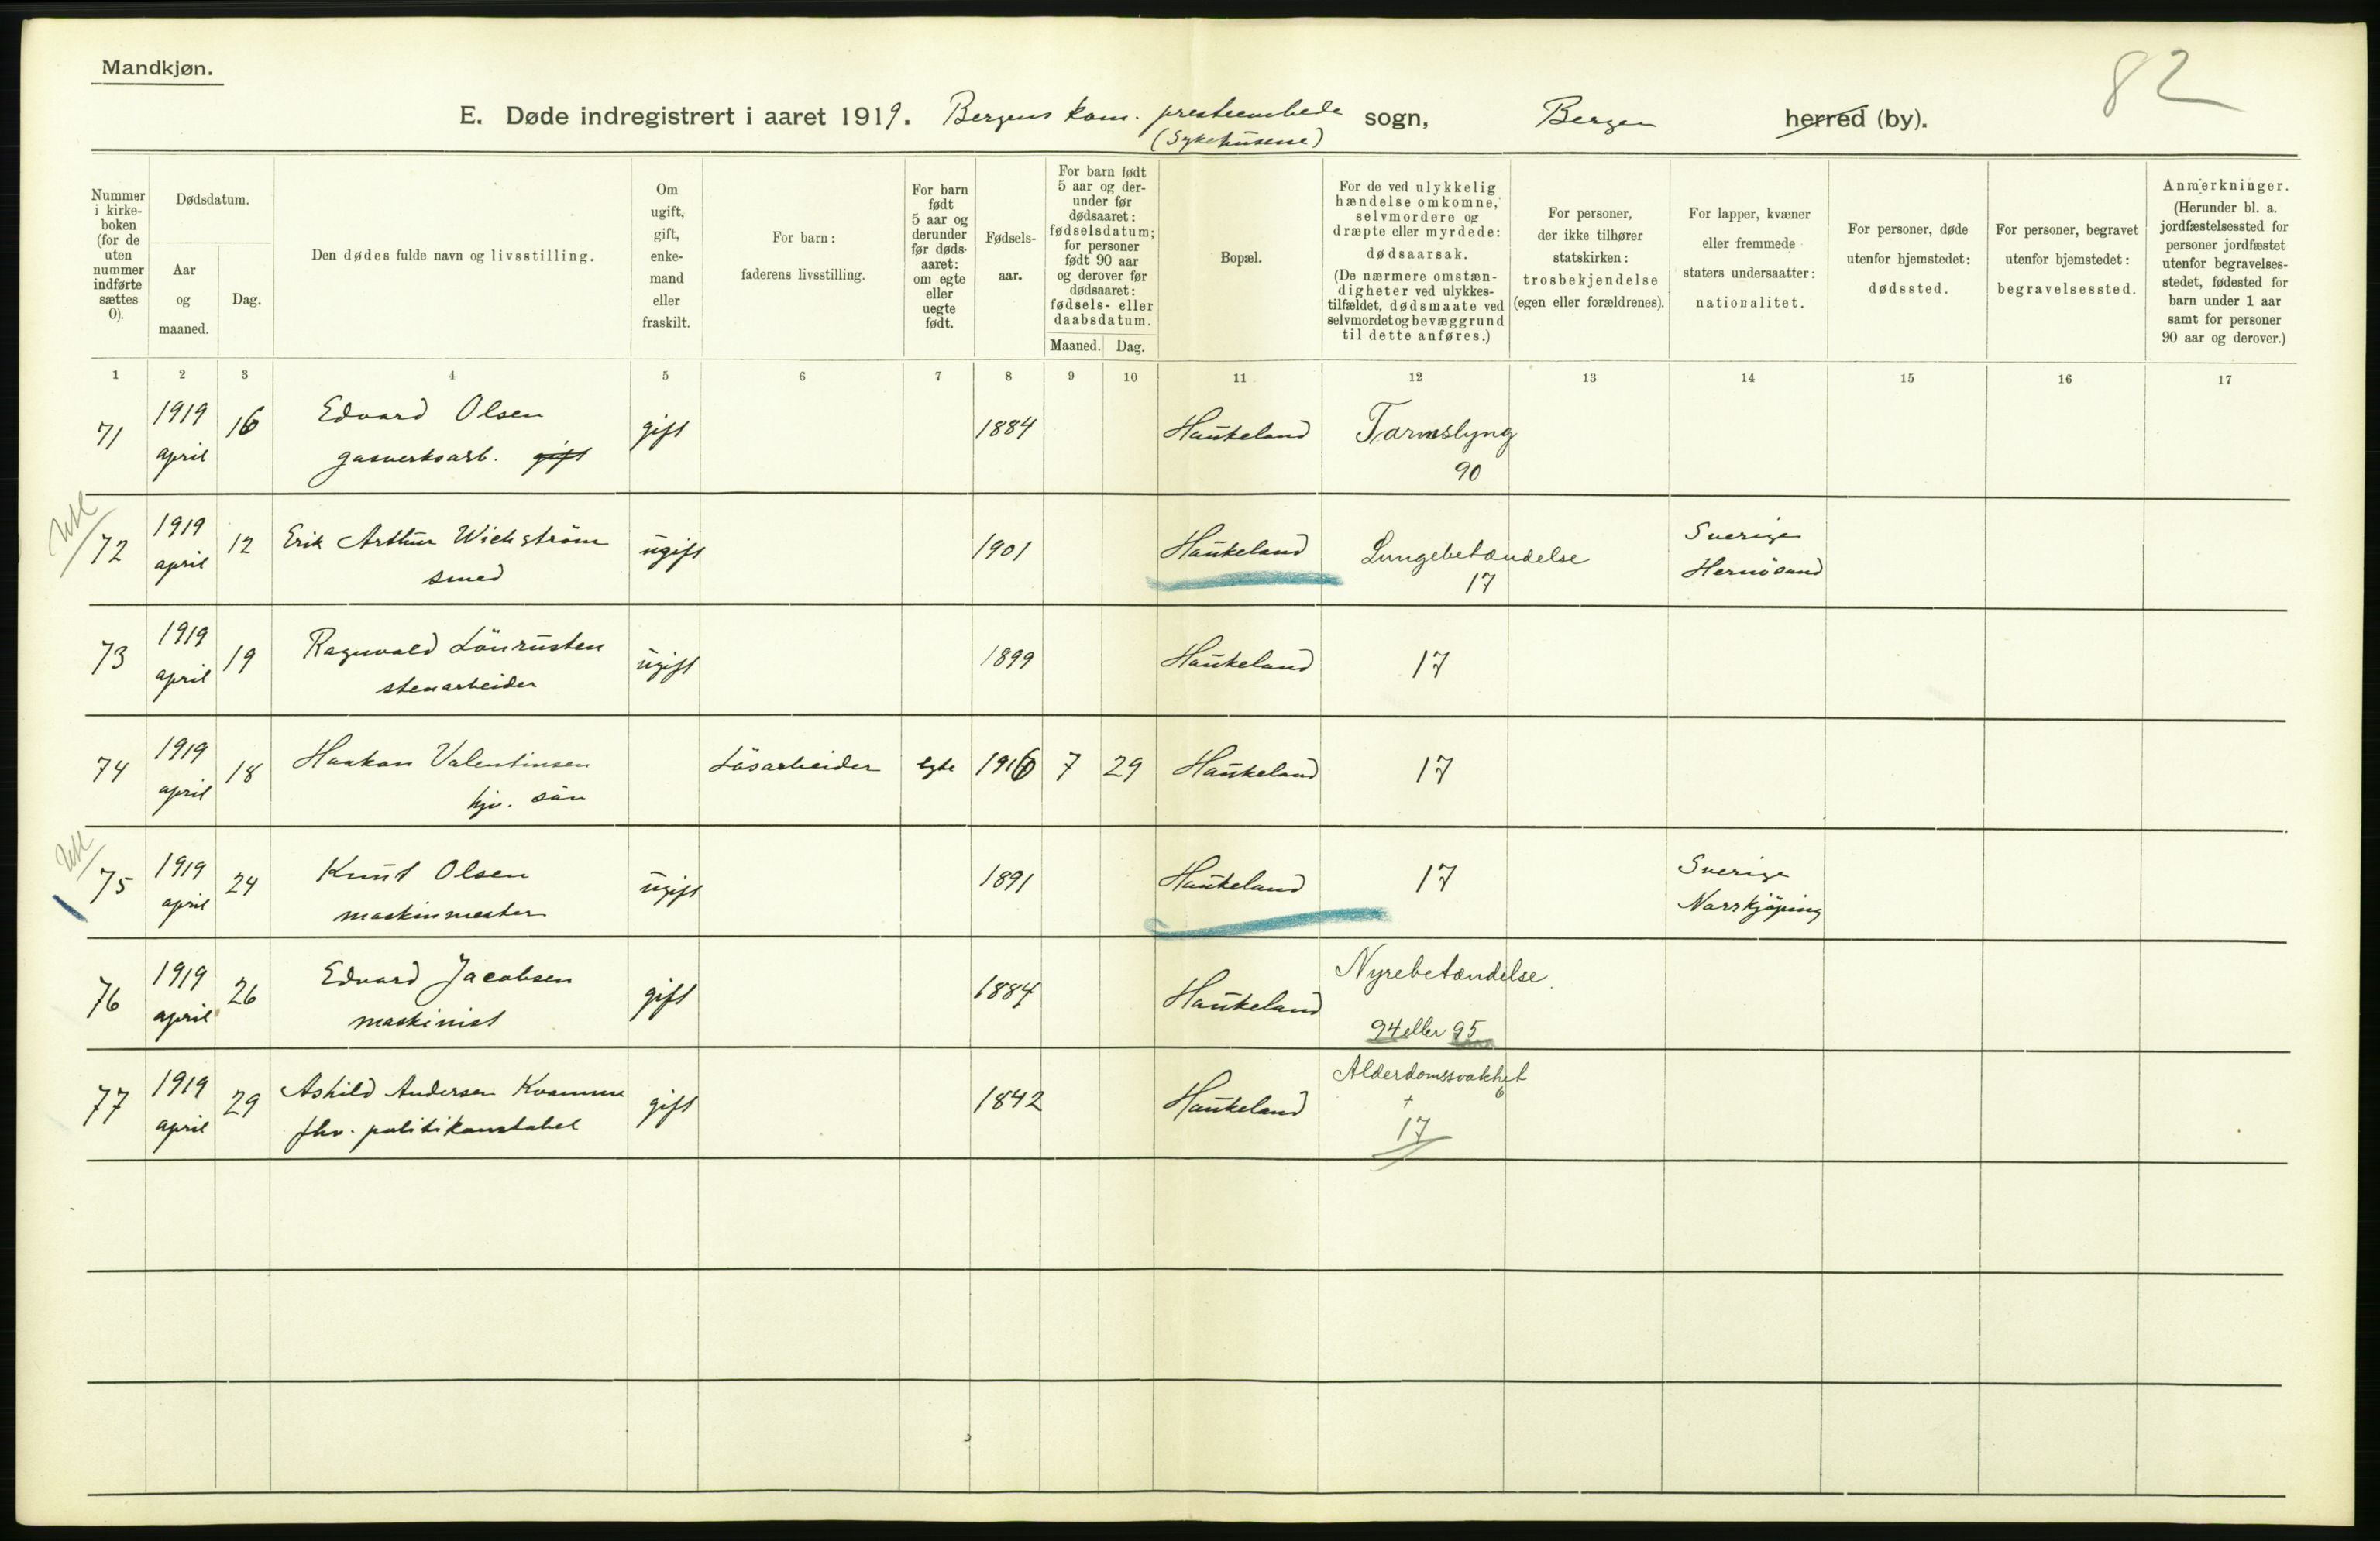 Mandkjøn.
82
E. Døde indregistrert i aaret 1919. Bergens kom. presteembede sogn, Bergen herred (by).
(Sykehusene)
Nummer i kirke-boken (for de uten nummer indførte sættes 0).
Dødsdatum.
Aar og maaned.
Dag.
Den dødes fulde navn og livsstilling.
Om ugift, gift, enke-mand eller fraskilt.
For barn: faderens livsstilling.
For barn født 5 aar og derunder før døds-aaret: om egte eller uegte født.
Fødsels-aar.
For barn født 5 aar og der-under før dødsaaret: fødselsdatum; for personer født 90 aar og derover før dødsaaret: fødsels- eller daabsdatum.
Maaned. Dag.
Bopæl.
For de ved ulykkelig hændelse omkomne, selvmordere og dræpte eller myrdede: dødsaarsak. (De nærmere omstæn-digheter ved ulykkes-tilfældet, dødsmaate ved selvmordet og bevæggrund til dette anføres.)
For personer, der ikke tilhører statskirken: trosbekjendelse (egen eller forældrenes).
For lapper, kvæner eller fremmede staters undersaatter: nationalitet.
For personer, døde utenfor hjemstedet: dødssted.
For personer, begravet utenfor hjemstedet: begravelsessted.
Anmerkninger. (Herunder bl. a. jordfæstelsessted for personer jordfæstet utenfor begravelses-stedet, fødested for barn under 1 aar samt for personer 90 aar og derover.)
1 2 3 4 5 6 7 8 9 10 11 12 13 14 15 16 17
71 1919 april 16 Edvard Olsen gift 1884 Haukeland Tarmslyng
gasverksarb. gift 90
72 1919 april 12 Erik Arthur Wichström ugift 1901 Haukeland Lungebetændelse Sverige
smed 17 Hernösand
73 1919 april 19 Ragnvald Lönrusten ugift 1899 Haukeland 17
stenarbeider
74 1919 april 18 Haakon Valentinsen Løsarbeider egte 1916 7 29 Haukeland 17
hjv. søn
75 1919 april 24 Knut Olsen ugift 1891 Haukeland 17 Sverige
maskinmester Norrkjöping
76 1919 april 26 Edvard Jacobsen gift 1884 Haukeland Nyrebetændelse.
maskinist 94 eller 95
77 1919 april 29 Askild Andersen Kvamme gift 1842 Haukeland Alderdomssvakhet
fhv. politikonstabel + 6
17